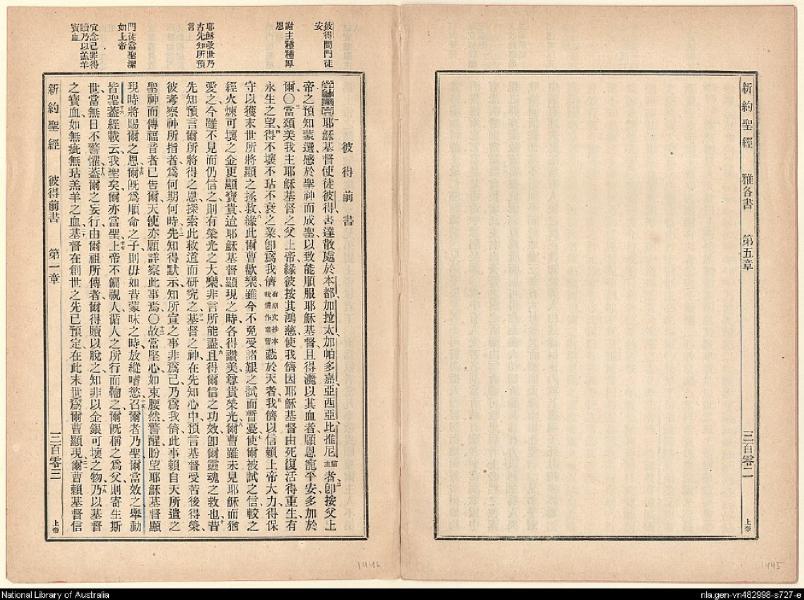 新約聖經 雅各書 第五章 三百零二 上帝
彼得問門徒安
謝主種種厚恩
耶穌救世乃古先知所預言
門徒當聖潔如上帝
宜念己罪得贖乃以羔羊寶血
彼得前書
耶穌基督使徒彼得書達散處於本都加拉太加帕多嘉亞西亞比推尼者卽按父上
帝之預知蒙選感於聖神而成聖以致能順服耶穌基督且得灑以其血者願恩寵平安多加於
爾〇當頌美我主耶穌基督之父上帝緣彼按其鴻慈使我儕因耶穌基督由死復活得重生有
永生之望得不壞不玷不衰之業卽爲我儕藏於天者我儕以信賴上帝大力得保
守以獲末世所將顯之拯救緣此爾曹歡樂雖今不免受諸艱之試而暫憂使爾被試之信較之
經火煉可壞之金更顯寶貴迨耶穌基督顯現之時各得讚美尊貴榮光爾曹雖未見耶穌而猶
愛之今雖不見而仍信之則有榮光之大樂非言所能盡且得爾信之功效卽爾靈魂之救也昔
先知預言爾所將得之恩探索此救道而研究之基督之神在先知心中預言基督受苦後得榮
彼考察神所指者爲何期何時先知得默示知所宣之事非爲己乃爲我儕此事賴自天所遣之
聖神而傳福音者已告爾天使亦願詳察此事焉〇故當堅心如束腰然警醒盼望耶穌基督顯
現時將賜爾之恩爾旣爲順命之子則毋如昔蒙昧之時放縱嗜慾召爾者乃聖爾當效之舉動
皆聖蓋經載云我聖矣爾亦當聖上帝不偏視人循人之所行而鞫之爾旣稱之爲父則寄生斯
世當無日不警懼蓋爾之妄行由爾祖所傳者爾得贖以脫之知非以金銀可壞之物乃以基督
之寶血如無疵無玷羔羊之血基督在創世之先已預定在此末世爲爾曹顯現爾曹賴基督信
新約聖經 彼得前書 第一章 三百零三 上帝
National Library of Australia
nla.gen-vn482998-s727-e